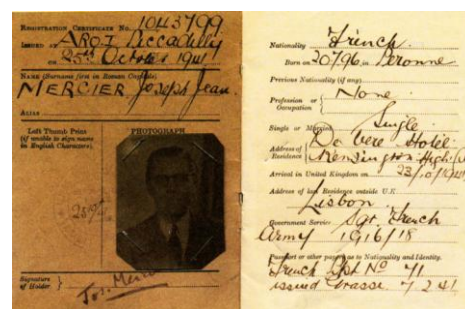 REGISTRATION CERTIFICATE No. 1043799
ISSUED AT ARO.I Piccadilly
ON 25th October 1941
NAME (Surname first in Roman Capitals)
MERCIER Joseph Jean.
ALIAS
Left Thumb Print
(if unable to sign name
in English Characters).
PHOTOGRAPH
Signature
of Holder
Nationality French.
Born on 20 7 96 in Peronne
Previous Nationality (if any)
Profession or
Occupation
None
Single or Married Single
Address of
Residence
De Vere Hotel
Kensington High
Arrival in United Kingdom on 23/10/1941
Address of last Residence outside U.K.
Lisbon.
Government Service Sgt. French
Army 1916/18
Passport or other papers as to Nationality and Identity.
French Ppt No 71
issued Grasse 7 2 41